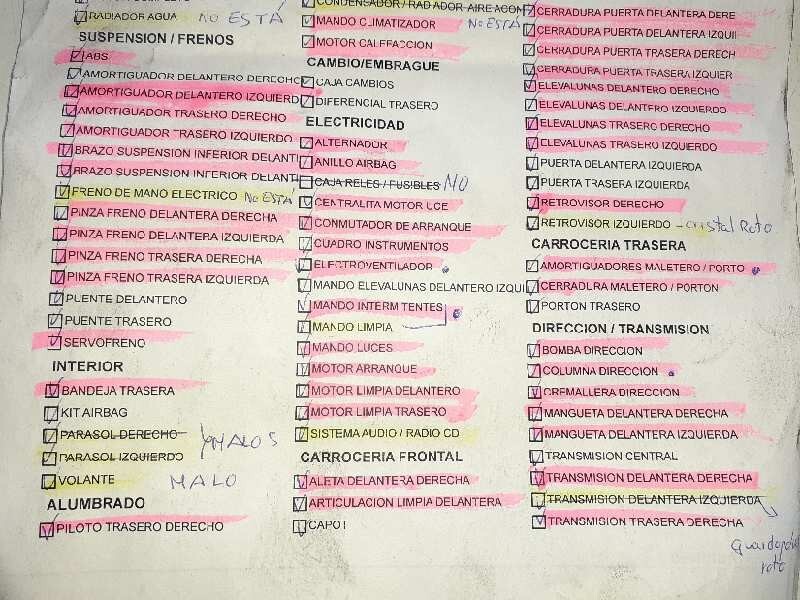 RADIADOR AGUA NO ESTÁ
SUSPENSION / FRENOS
ABS
AMORTIGUADOR DELANTERO DERECHO
AMORTIGUADOR DELANTERO IZQUIERD
AMORTIGUADOR TRASERO DERECHO
AMORTIGUADOR TRASERO IZQUIERDO
BRAZO SUSPENSION INFERIOR DELANT
BRAZO SUSPENSION INFERIOR DELANT
FRENO DE MANO ELECTRICO NO ESTÁ
PINZA FRENO DELANTERA DERECHA
PINZA FRENO DELANTERA IZQUIERDA
PINZA FRENO TRASERA DERECHA
PINZA FRENO TRASERA IZQUIERDA
PUENTE DELANTERO
PUENTE TRASERO
SERVOFRENO
INTERIOR
BANDEJA TRASERA
KIT AIRBAG
PARASOL DERECHO
PARASOL IZQUIERDO
MALOS
VOLANTE MALO
ALUMBRADO
PILOTO TRASERO DERECHO
CONDENSADOR / RADIADOR AIRE ACON
MANDO CLIMATIZADOR NO ESTÁ
MOTOR CALEFACCION
CAMBIO/EMBRAGUE
CAJA CAMBIOS
DIFERENCIAL TRASERO
ELECTRICIDAD
ALTERNADOR
ANILLO AIRBAG
CAJA RELES / FUSIBLES NO
CENTRALITA MOTOR UCE
CONMUTADOR DE ARRANQUE
CUADRO INSTRUMENTOS
ELECTROVENTILADOR
MANDO ELEVALUNAS DELANTERO IZQUI
MANDO INTERMITENTES
MANDO LIMPIA
MANDO LUCES
MOTOR ARRANQUE
MOTOR LIMPIA DELANTERO
MOTOR LIMPIA TRASERO
SISTEMA AUDIO / RADIO CD
CARROCERIA FRONTAL
ALETA DELANTERA DERECHA
ARTICULACION LIMPIA DELANTERA
CAPOT
CERRADURA PUERTA DELANTERA DERE
CERRADURA PUERTA DELANTERA IZQUI
CERRADURA PUERTA TRASERA DERECH
CERRADURA PUERTA TRASERA IZQUIER
ELEVALUNAS DELANTERO DERECHO
ELEVALUNAS DELANTERO IZQUIERDO
ELEVALUNAS TRASERO DERECHO
ELEVALUNAS TRASERO IZQUIERDO
PUERTA DELANTERA IZQUIERDA
PUERTA TRASERA IZQUIERDA
RETROVISOR DERECHO
RETROVISOR IZQUIERDO - cristal Roto
CARROCERIA TRASERA
AMORTIGUADORES MALETERO / PORTO
CERRADURA MALETERO / PORTON
PORTON TRASERO
DIRECCION / TRANSMISION
BOMBA DIRECCION
COLUMNA DIRECCION
CREMALLERA DIRECCION
MANGUETA DELANTERA DERECHA
MANGUETA DELANTERA IZQUIERDA
TRANSMISION CENTRAL
TRANSMISION DELANTERA DERECHA
TRANSMISION DELANTERA IZQUIERDA
TRANSMISION TRASERA DERECHA
roto